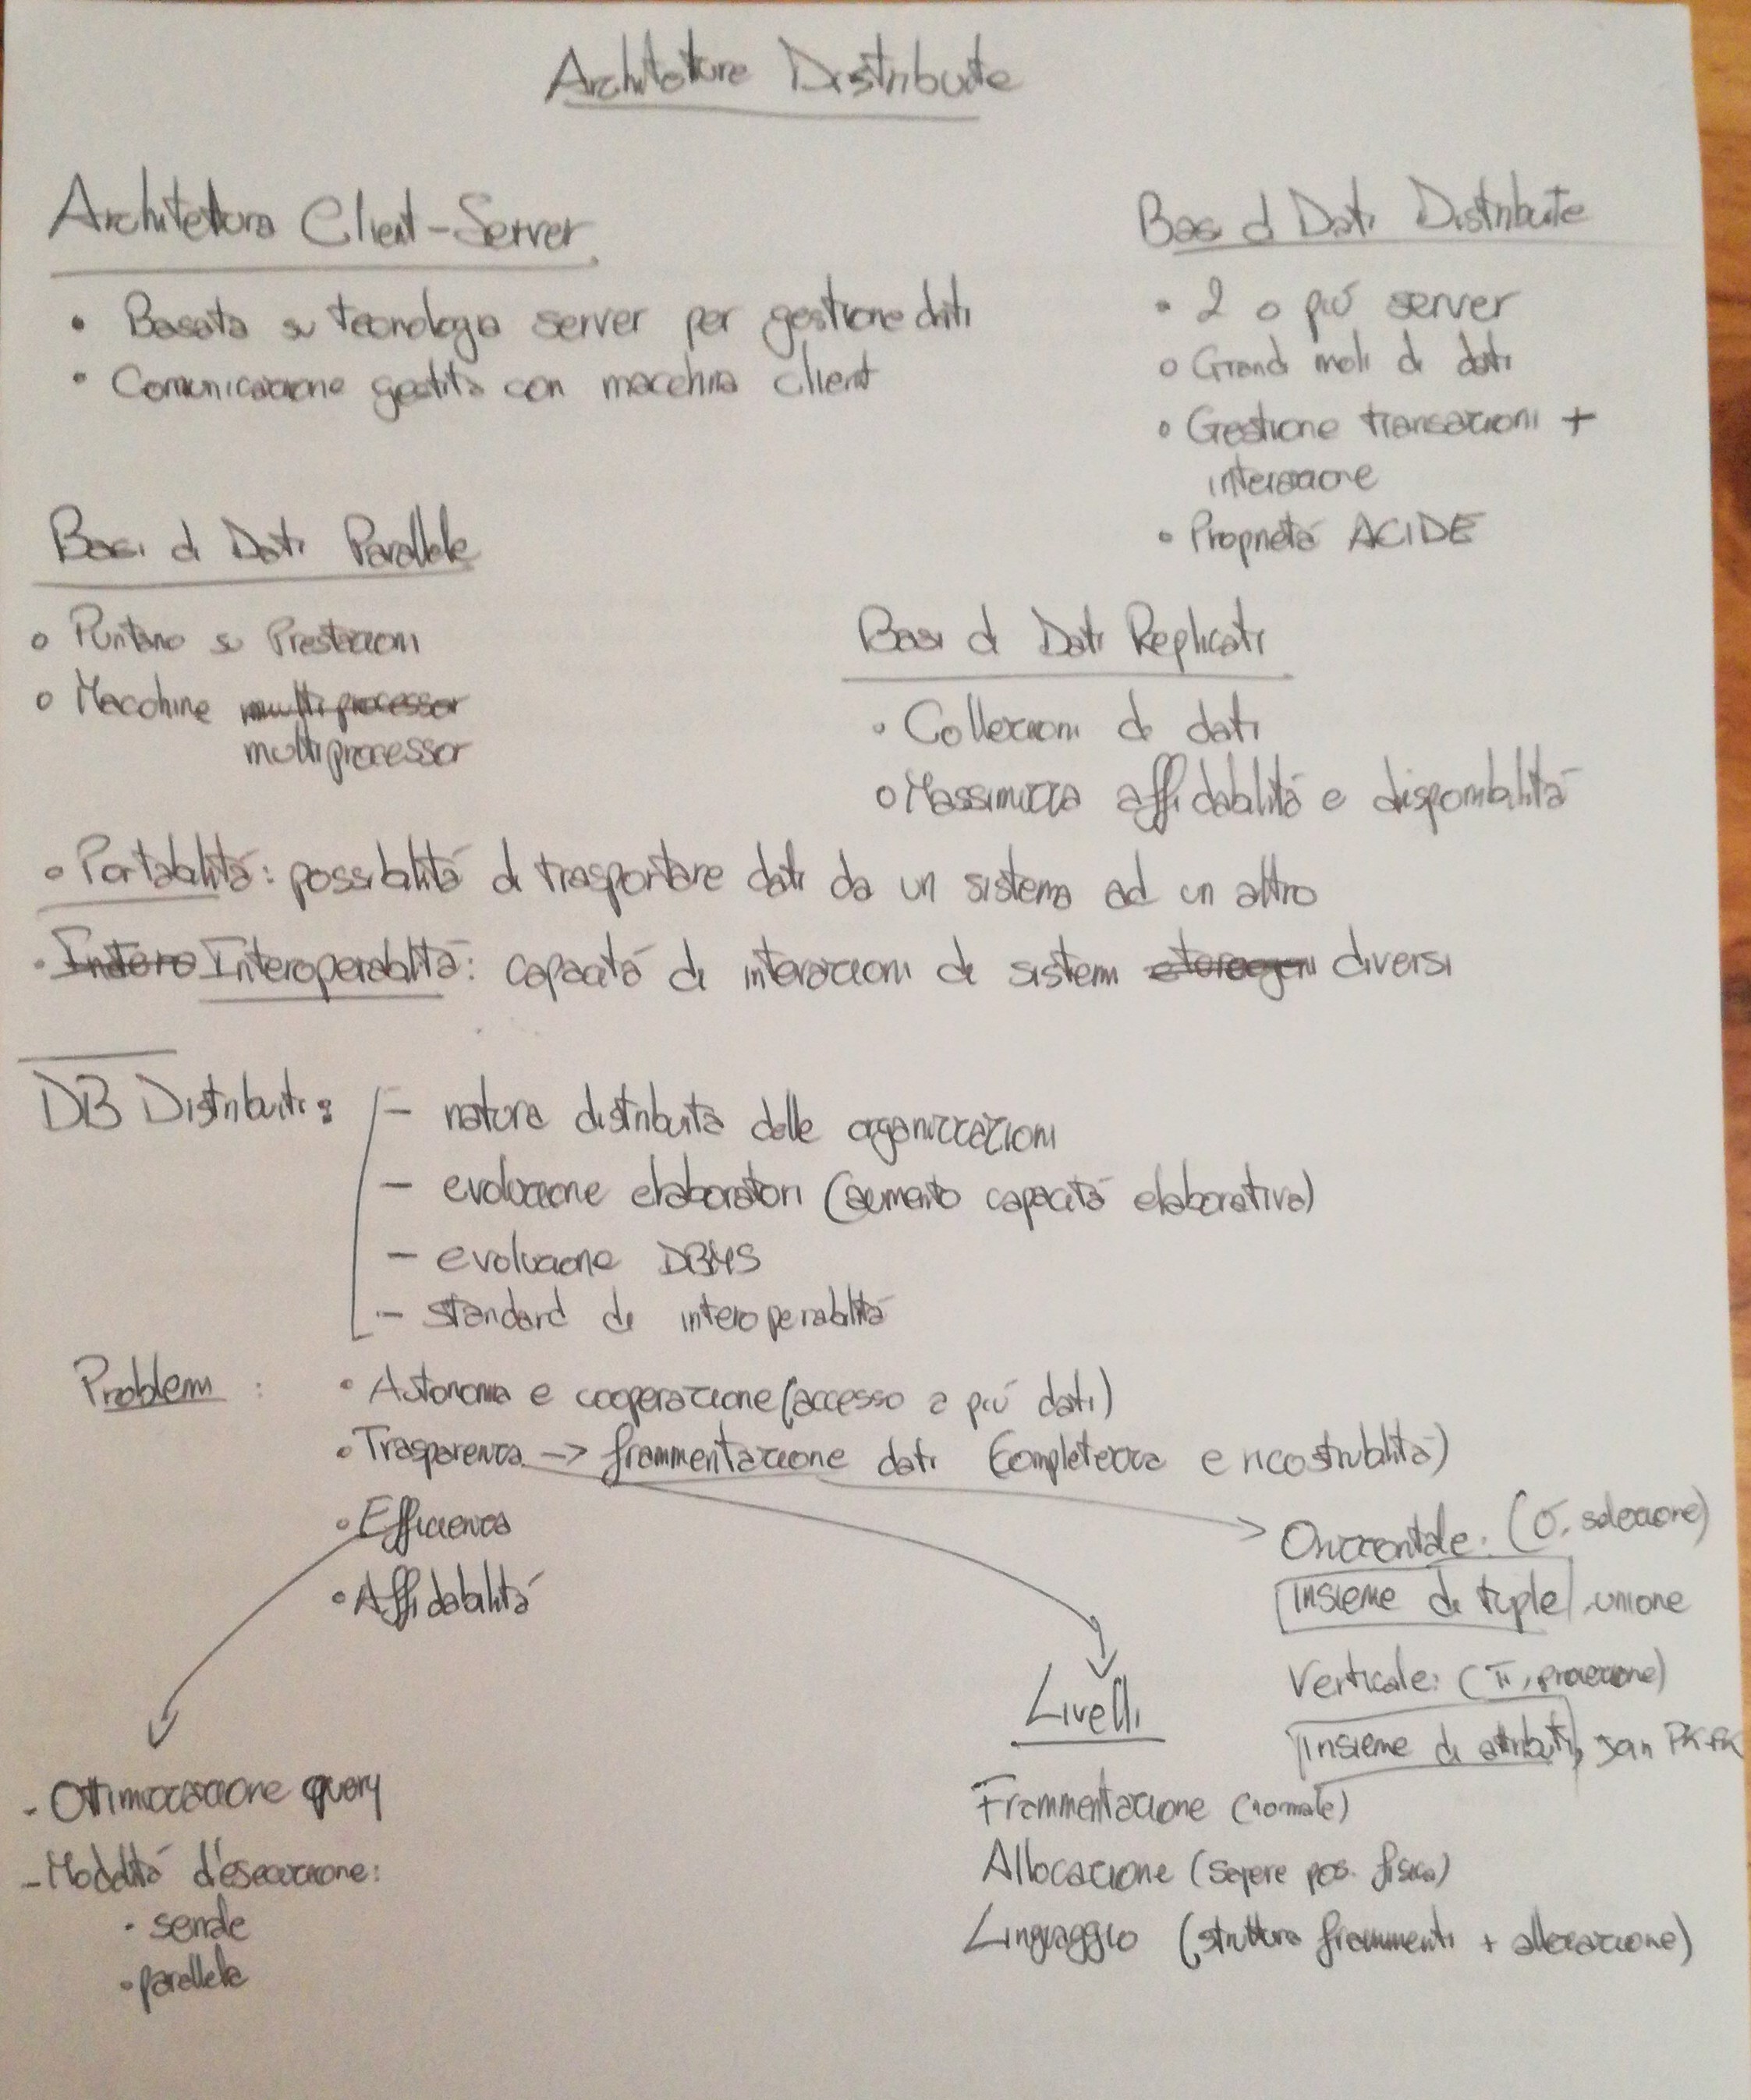 Architetture Distribuite
Architettura Client-Server
• Basata su tecnologia server per gestione dati
• Comunicazione gestita con macchina client
Basi di Dati Distribuite
• 2 o piú server
• Grandi moli di dati
• Gestione transazioni +
interazione
• Proprietá ACIDE
Basi di Dati Parallele
• Puntano su Prestazioni
• Macchine multi processor
multiprocessor
Basi di Dati Replicati
• Collezioni di dati
• Massimizza affidabilitá e disponibilitá
• Portabilitá: possibilitá di trasportare dati da un sistema ad un altro
• Intero Interoperabilitá: capacitá di interazioni di sistemi eterogeni diversi
DB Distribuiti:
- natura distribuita delle organizzazioni
- evoluzione elaboratori (aumento capacitá elaborativa)
- evoluzione DBMS
- standard di interoperabilitá
Problemi :
• Autonomia e cooperazione (accesso a piú dati)
• Trasparenza -> frammentazione dati (completezza e ricostruibilitá)
• Efficienza
• Affidabilitá
Orizzontale: (σ, selezione)
insieme di tuple, unione
Verticale: (π, proiezione)
insieme di attributi, join PK-FK
Livelli
Frammentazione (normale)
Allocazione (sapere pos. fisica)
Linguaggio (struttura frammenti + allocazione)
- Ottimizzazione query
- Modalitá d'esecuzione:
• seriale
• parallela